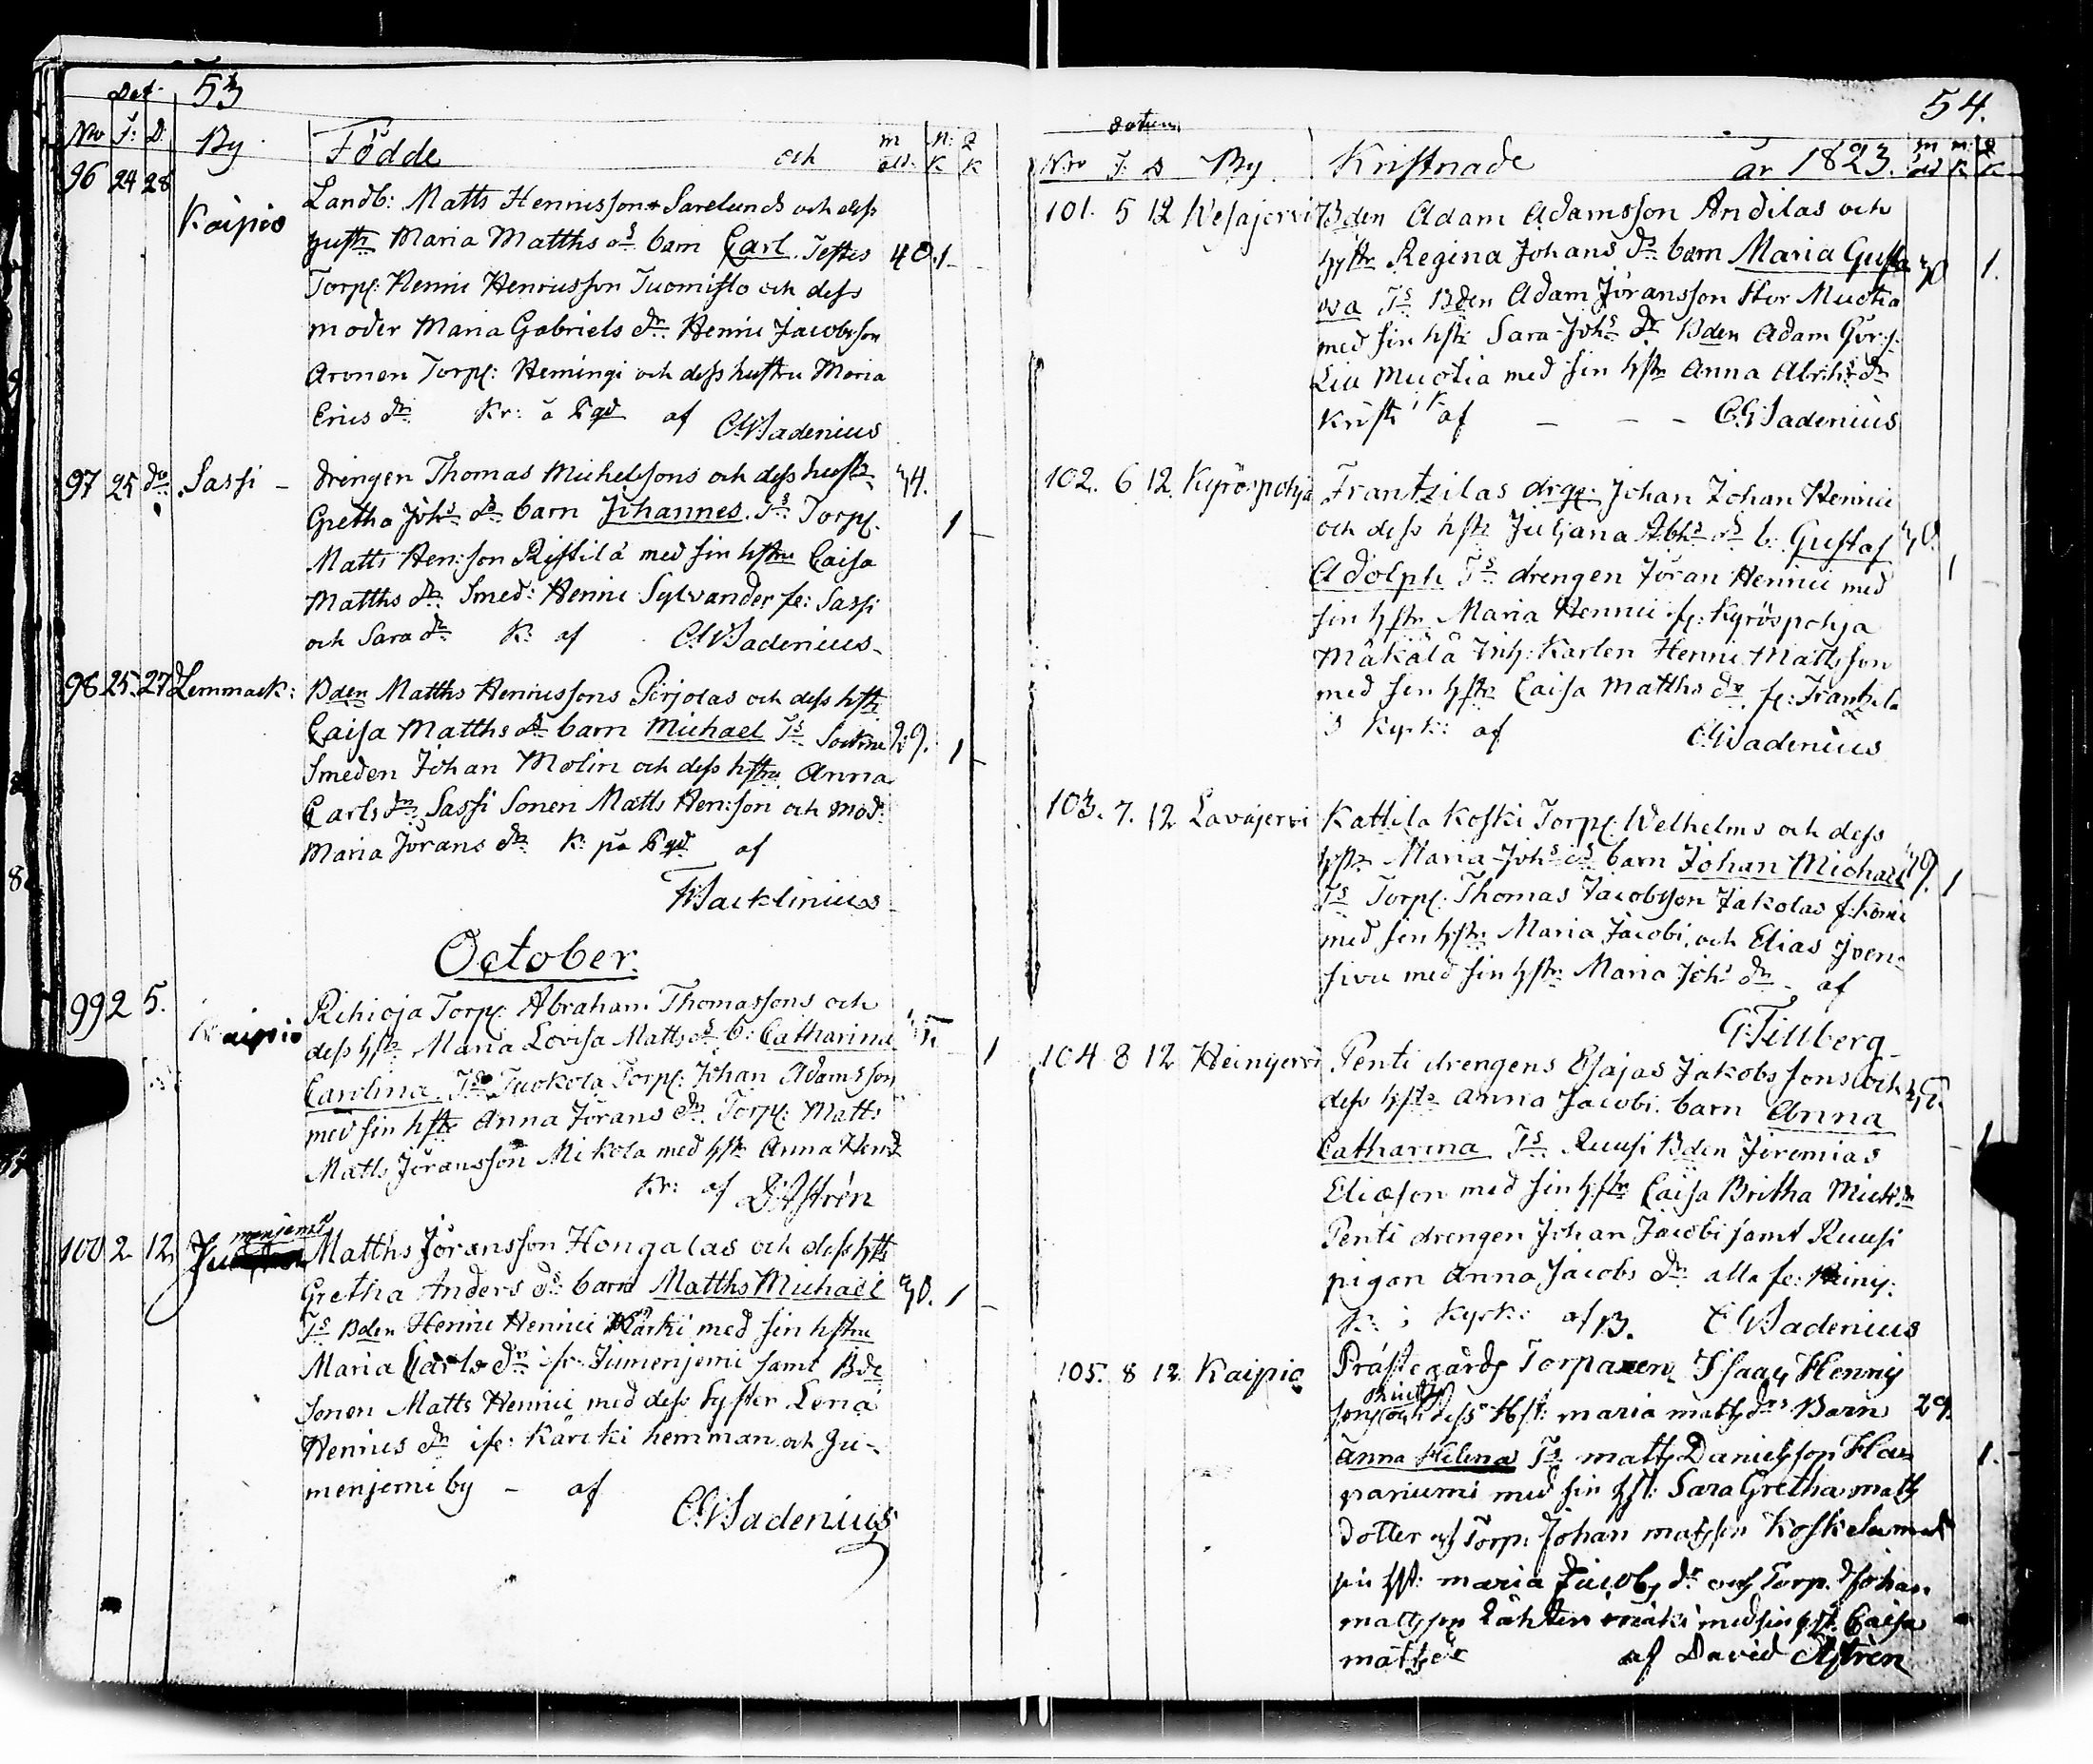 53
Dat.
No F: D. By. Födde och m ald. M: K Q K
96 24 28 Kaipio
Landb: Matts Henricsson Sarelunds och dess
hustr Maria Matths ds barn Carl. Testes 40. 1 -
Torp: Henric Henricsson Tuomisto och dess
moder Maria Gabriels dr. Henric Jacobsson
Aronen Torp: Hemingi och dess hustru Maria
Erics dr Kr: å af C.G. Sadenius
97 25 do. Sassi - drengen Thomas Michelssons och dess hustr 34.
Gretha Johs ds barn Johannes. Ts Torp. 1 -
Matts Hen:son Ristilä med sin hstru Caisa
Matths dr. Smed: Henric Sylvander fr: Sassi
och Sara dr K: af C.G. Sadenius.
98 25. 27 Lemmack: Bden Matths Henricssons Pirjolas och dess hstr
Caisa Matths ds barn Michael Ts Sockne 29. 1 -
Smeden Johan Molin och dess hstru Anna
Carls dr, Sassi Sonen Matts Hen:son och mod:
Maria Jörans dr K: på af
Sacklinius
October.
99 2 5. Kaipio Rihioja Torp: Abraham Thomassons och
dess hstr Maria Lovisa Matts ds b: Catharina 1
Carolina. Ts Tuokola Torp: Johan Adamsson
med sin hstr Anna Jörans dr Torp: Matts
Matts Jöransson Mikola med hstr Anna Henr
Kr: af D. Aströn
100. 2. 12. menjemi
Ju Matths Jöransson Hongalas och dess hstr
Gretha Anders ds barn Matths Michaël 30. 1 -
Ts Bden Henric Henrici Kärki med sin hstru
Maria Carls dr fr. Jumenjemi samt Bde
sonen Matts Henrici med dess Syster Lena
Henrics dr fr: Kärcki hemman och Ju-
menjemi by - af
C.G. Sadenius
54.
Datum
Nro F: D By. Kristnade år 1823. m ald m: K Q K
101. 5 12 Wesajervi Bden Adam Adamsson Andilas och
hstr Regina Johans dr barn Maria Gusta 30 1.
va Ts Bden Adam Jöransson Stor Muotia
med sin hstr Sara Johs dr Bden Adam Jör:s:
Lill Muotia med sin hstr Anna Abrhs dr
Krist: i K af - - - C.G. Sadenius
102. 6 12. Kyröspohja Frantzilas drge: Johan Johan Henrici
och dess hstr Juliana Abhs ds b: Gustaf 30.
Adolph Ts drengen Jöran Henrici med 1 -
sin hstr Maria Henrici fr: Kyröspohja
Mäkälä Inh: Karlen Henric Mattsson
med sin hstr Caisa Matths dr. fr: Frantzila
i Kyrk: af C.G. Sadenius
103. 7. 12 Lavajervi Kattila koski Torp: Welhelms och dess
hstr Maria Johs ds barn Johan Michael 1 -
Ts Torp: Thomas Jacobsson Jakolas
med sin hstr Maria Jacobi, och Elias
sivu med sin hstr Maria Johs dr - af
G. Tillberg
104 8 12 Heinijervi Penti drengens Esajas Jakobssons och
dess hstr Anna Jacobi. barn Anna
Catharina Ts Ruusi Bden Jeremias 1
Eliæson med sin hstr Caisa Britha Mick: dr
Penti drengen Johan Jacobi samt Ruusi
pigan Anna Jacobs dr. alla fr: Heinij:
K: i Kyrk: af C.G. Sadenius
105. 8 12. Kaipio Prästegårds Torparen Isaac Henrics
son och dess Hst: maria matts drs Barn 29.
Anna Helena Ts matts Danielsson Haa- 1. -
paniemi med sin hst: Sara Gretha matts
dotter och Torp: Johan matsson Koskela med
sin hst: maria Jacobs dr och Torp. Johan
mattsson Lähten mäki med sin hst. Caisa
matts dr af David Aströn